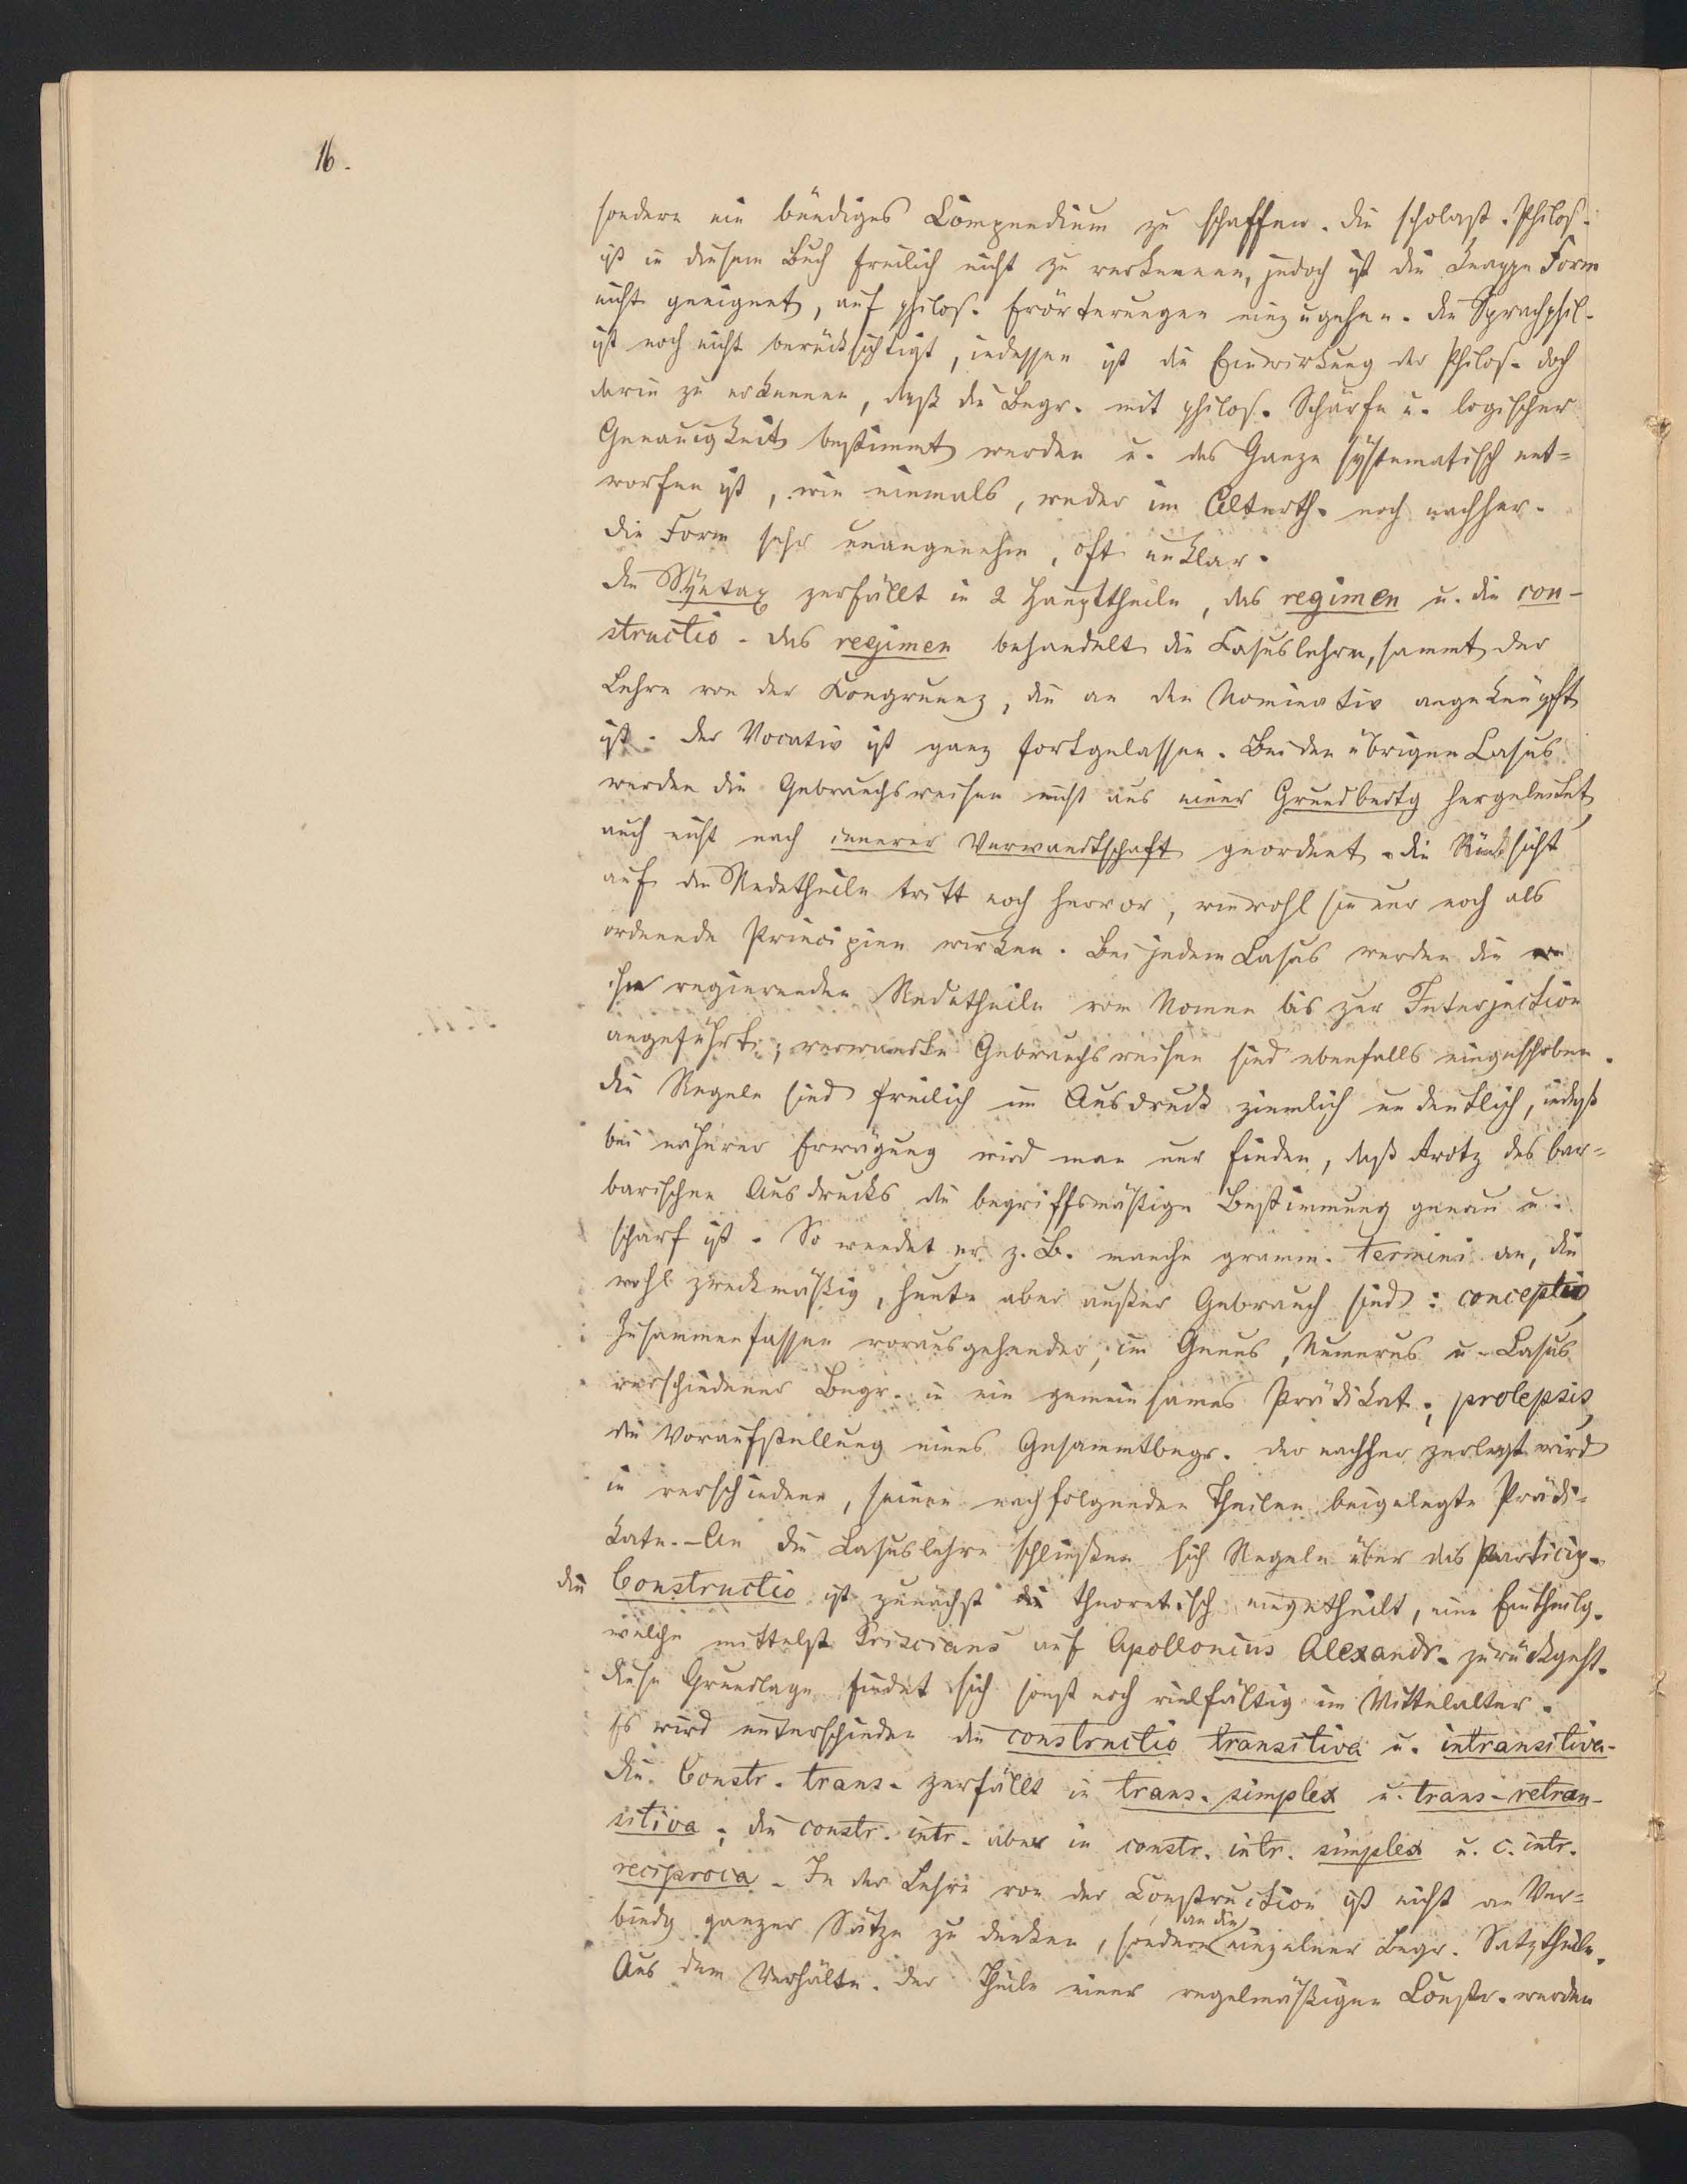 16.
sondern ein bündiges Compendium zu schaffen. Die scholast. Philos.
ist in diesem Buch freilich nicht zu verkennen, jedoch ist die knappe Form
nicht geeignet, auf philos. Erörterungen einzugehen. Die Sprachphil.
ist noch nicht berücksichtigt, indessen ist die Einwirkung der Philos. doch
darin zu erkennen, daß die Begr. mit philos. Schärfe u. logischer
Genauigkeit bestimmt werden u. das Ganze systematisch ent-
worfen ist, wie niemals, weder im Alterth. noch nachher.
Die Form sehr unangenehm, oft unklar.
Die Syntax zerfällt in 2 Haupttheile, das regimen u. die con-
structio. Das regimen behandelt die Casuslehre, sammt der
Lehre von der Kongruenz, die an den Nominativ angeknüpft
ist. Der Vocativ ist ganz fortgelassen. Bei den übrigen Casus
werden die Gebrauchsweisen nicht aus einer Grundbedtg hergeleitet,
auch nicht nach innerer Verwandtschaft geordnet. Die Rücksicht
auf die Redetheile tritt noch hervor, wiewohl sie nur noch als
ordnende Principien wirken. Bei jedem Casus werden die
ihn regierenden Redetheile vom Nomen bis zur Interjection
angeführt; verwandte Gebrauchsweisen sind ebenfalls eingeschoben.
Die Regeln sind freilich im Ausdruck ziemlich undeutlich, indeß
bei näherer Erwägung wird man nur finden, daß trotz des bar-
barischen Ausdrucks die begriffsmäßige Bestimmung genau u.
scharf ist. So wendet er z. B. manche gramm. Termini an, die
wohl zweckmäßig, heute aber außer Gebrauch sind: conceptio,
Zusammenfassen vorausgehender, im Genus, Numerus u. Casus
verschiedener Begr. in ein gemeinsames Prädikat; prolepsis,
die Voraufstellung eines Gesammtbegr. der nachher zerlegt wird
in verschiedene, seinen nachfolgenden Theilen beigelegte Prädi-
kate. - An die Casuslehre schließen sich Regeln über das Particip.
Die Constructio ist zunächst theoretisch eingetheilt, eine Eintheilg.
welche mittelst Priscians auf Apollonius Alexandr. zurückgeht.
Diese Grundlage findet sich sonst noch vielfältig im Mittelalter.
Es wird unterschieden die constructio transitiva u. intransitiva.
Die Constr. trans. zerfällt in trans. simplex u. trans. retran-
sitiva; die constr. intr. aber in constr. intr. simplex u. c. intr.
reciproca. In der Lehre von der Construction ist nicht an Ver-
bindg ganzer Sätze zu denken, sondern an die einzelner Begr. Satztheile.
Aus dem Verhältn. der Theile einer regelmäßigen Constr. werden